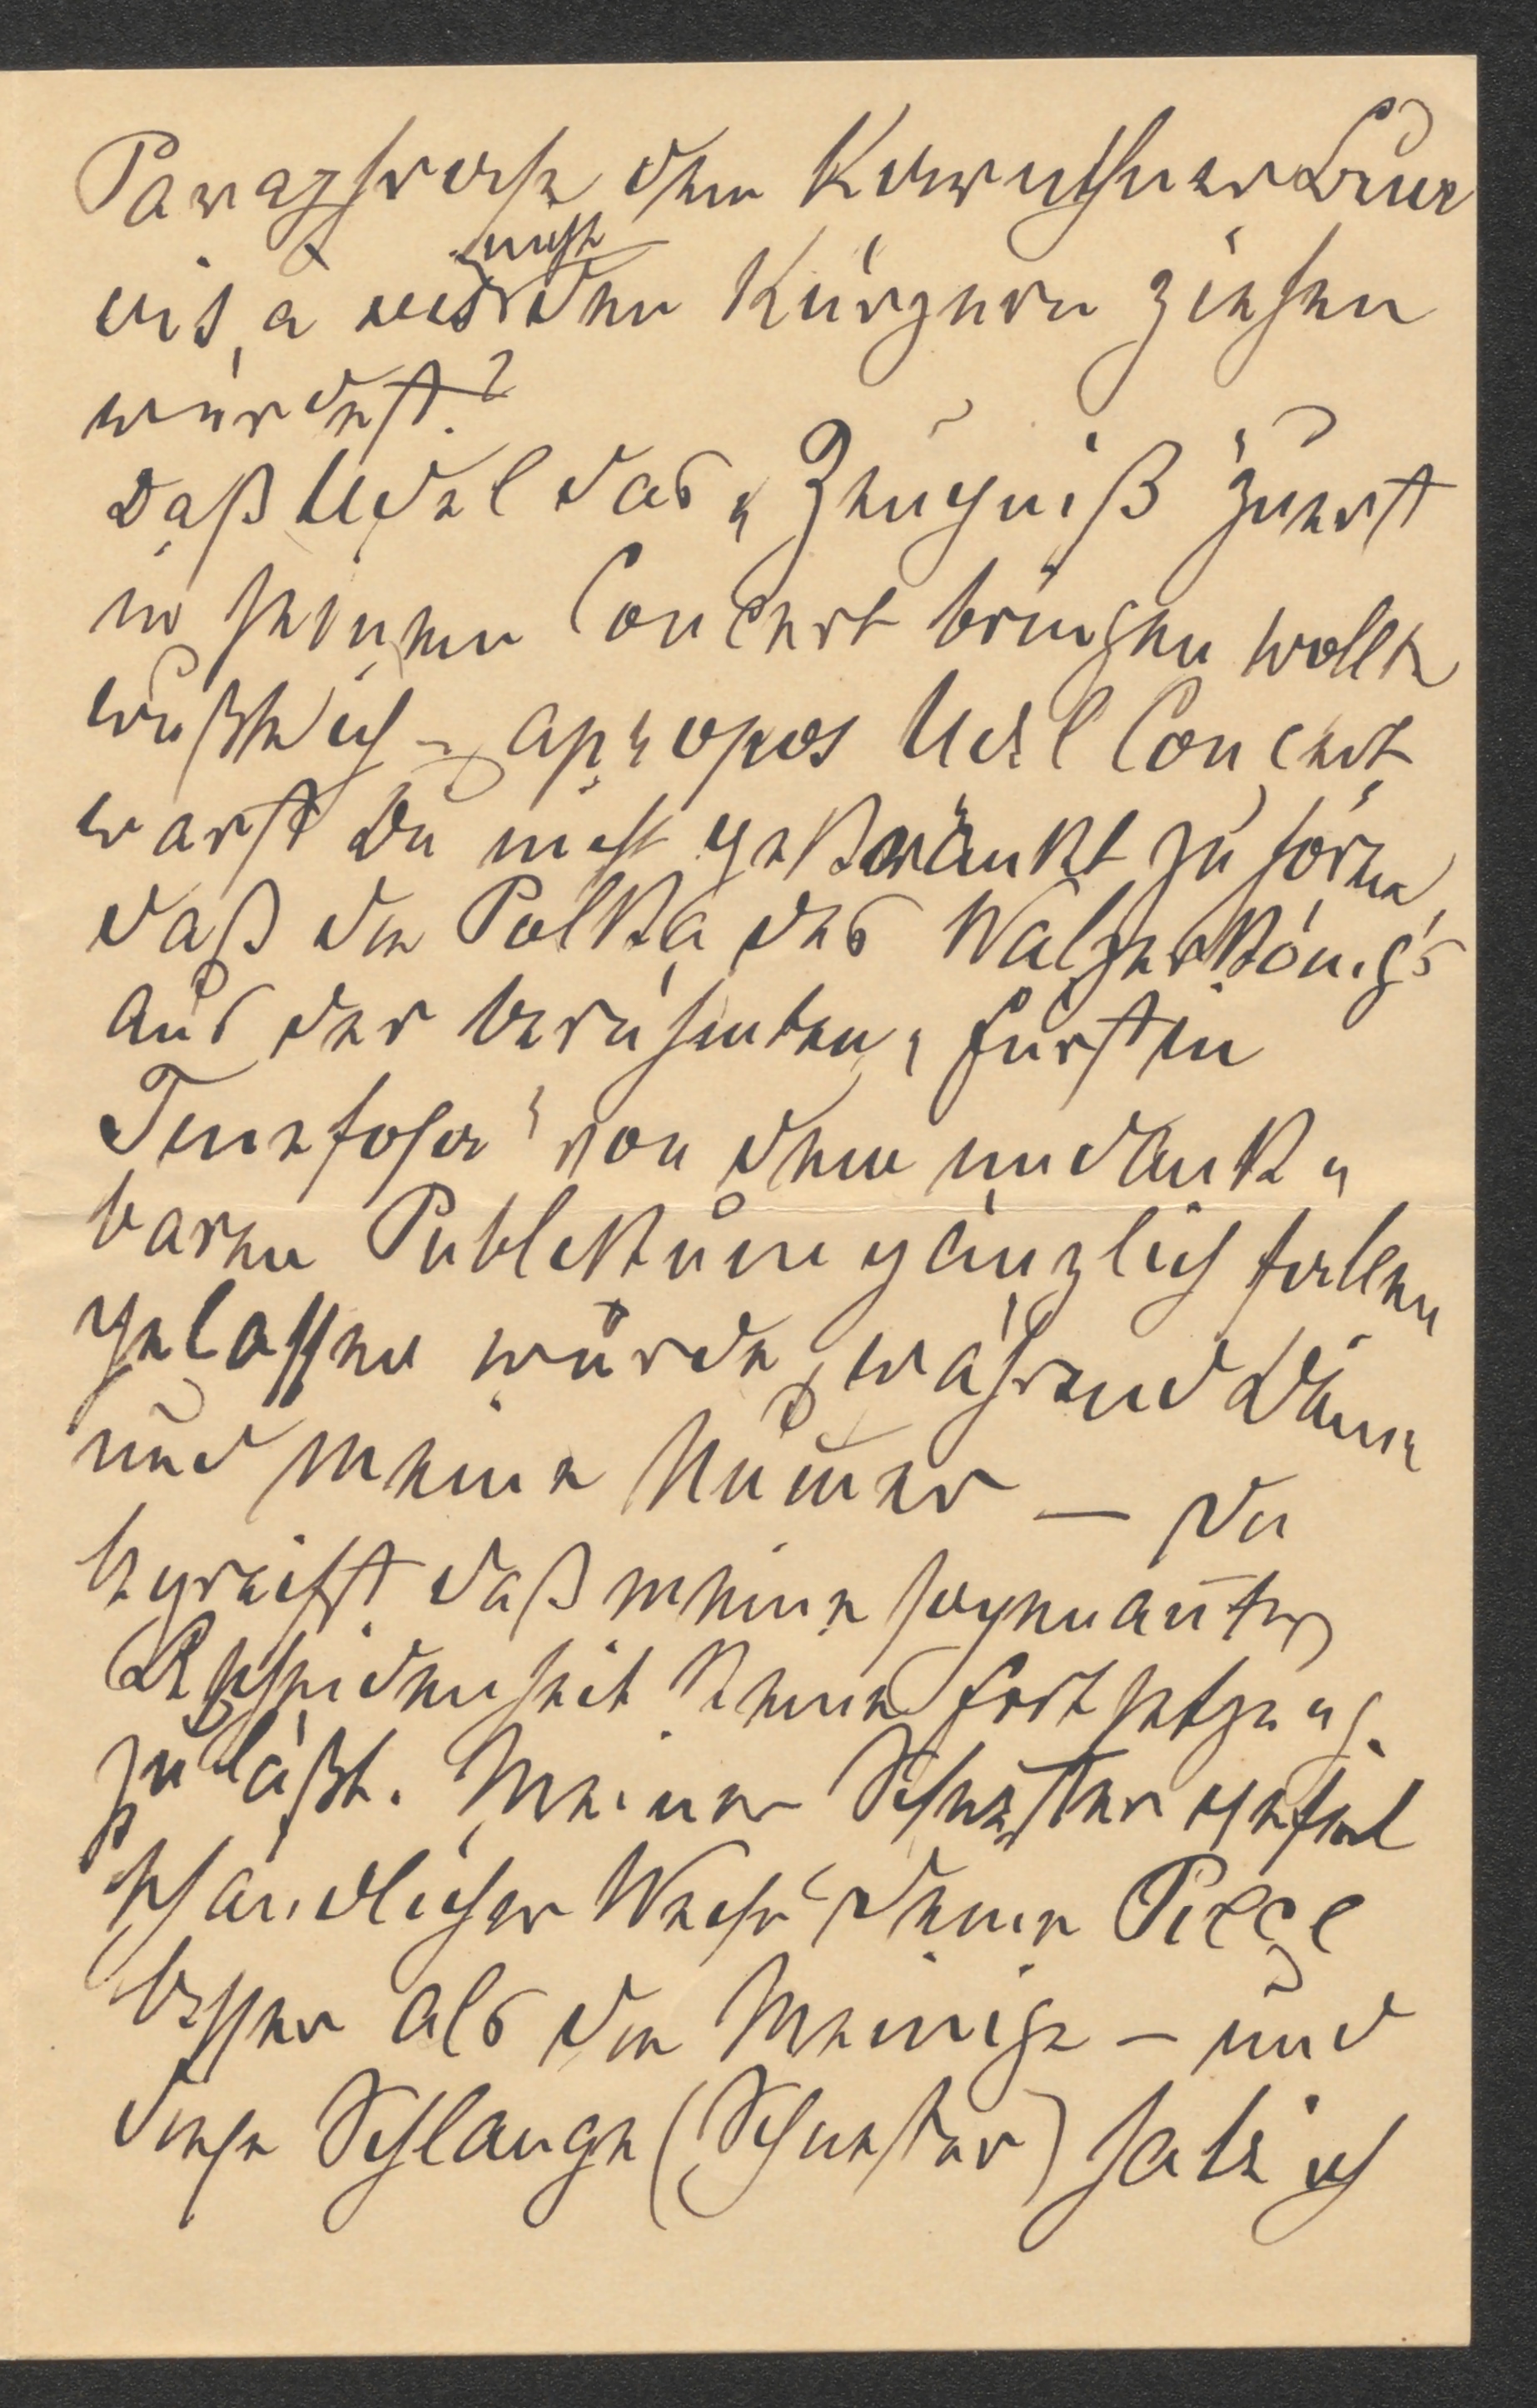 Paragraph dem Kärnthner Liner
vis, a vis nicht den Kürzern ziehen
würdest?
Daß Udel das „Zeugniß“ zuerst
in seinem Concert bringen wollte
wußte ich – apropos Udl Concert
warst Du nicht gekränkt zu hören,
daß die Polka des Walzerkönigs
aus der berühmten „Fürstin
Ninetta“ von dem undank„
baren Publikum gänzlich fallen
gelassen wurde, während Deine
und meine Num̅er — Du
begreifst daß meine sogenan̅te
Bescheidenheit keine Fortsetzung
zuläßt. Meiner Schwester gefiel
schändlicher Weise Deine Pieçe
besser als die Meinige – und
diese Schlange (Schwester) habe ich